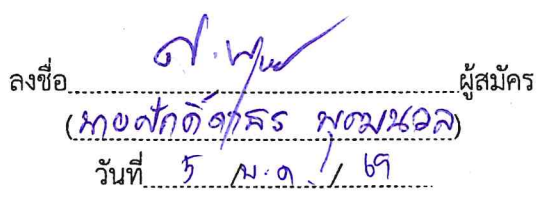 ลงชื่อ ผู้สมัคร
(นายศักดิ์ดาธร พุฒนวล)
วันที่ 5 / พ.ค. / 69